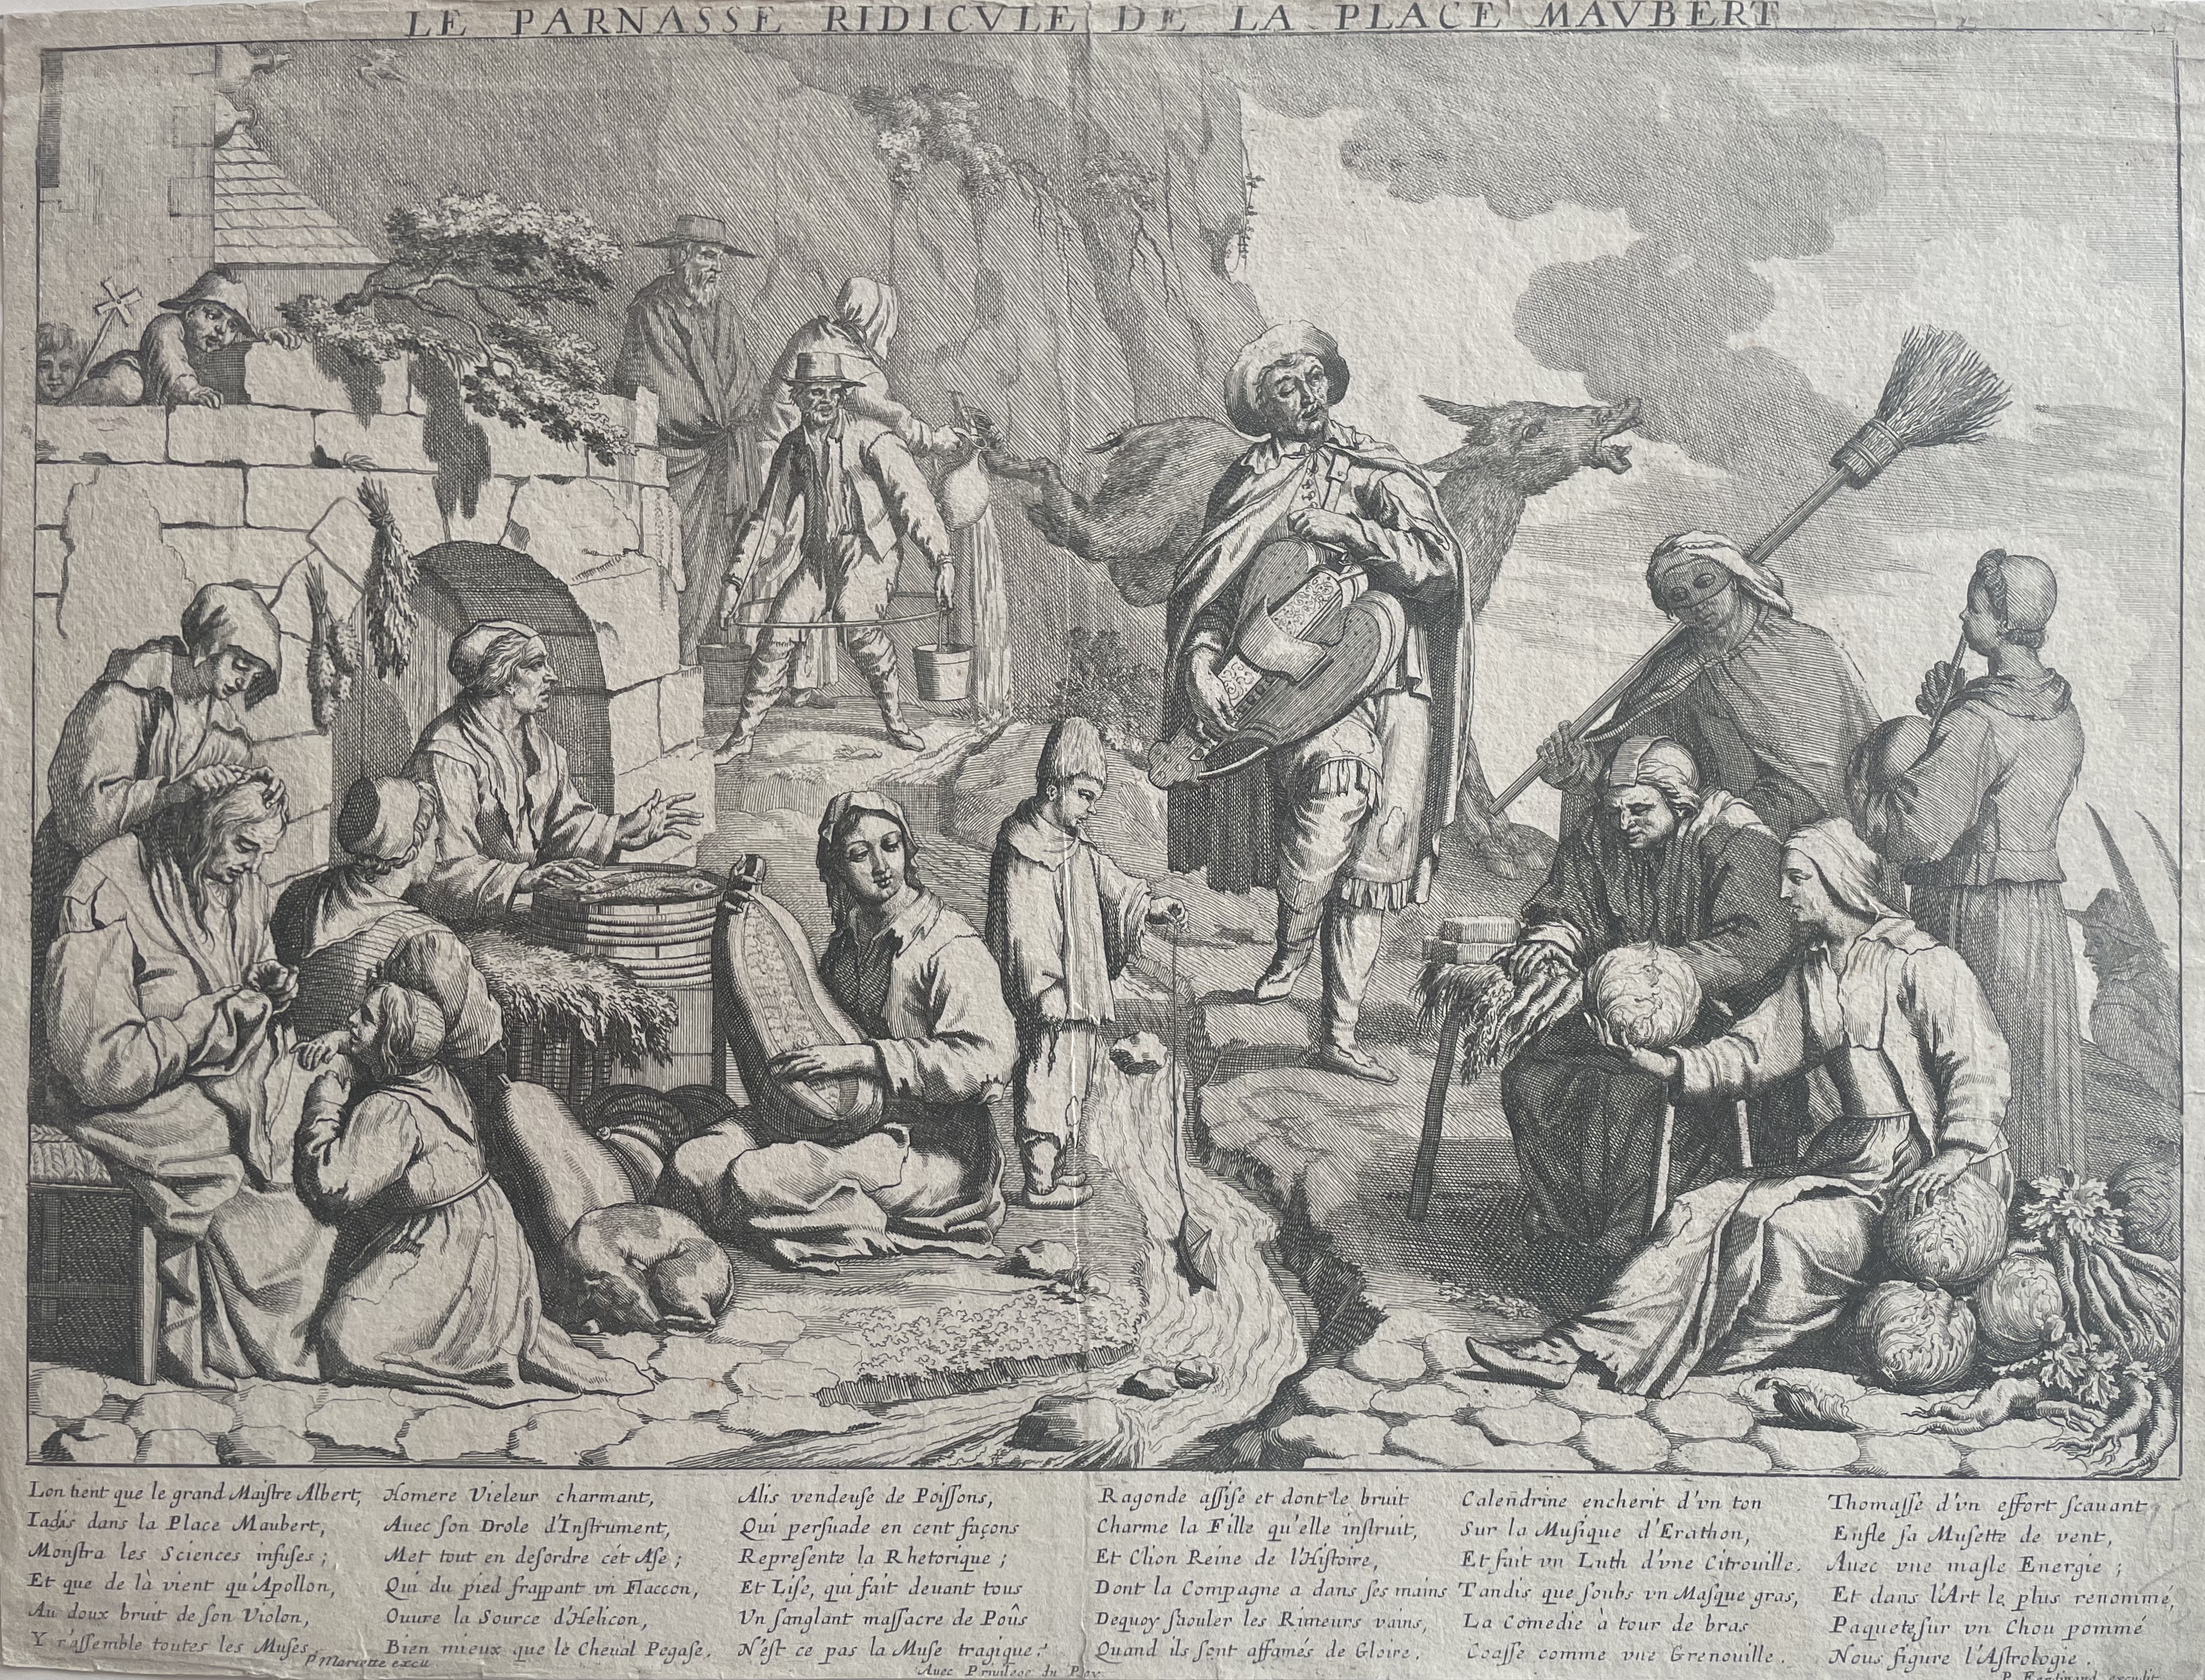 LE PARNASSE RIDICVLE DE LA PLACE MAVBERT
Lon tient que le grand Maiſtre Albert,
Iadis dans la Place Maubert,
Monſtra les Sciences infuſes ;
Et que de là vient qu'Apollon,
Au doux bruit de ſon Violon,
Y r'aſſemble toutes les Muſes.
Homere Vieleur charmant,
Auec ſon Drole d'Inſtrument,
Met tout en deſordre cét Aſe ;
Qui du pied frappant vn Flaccon,
Ouure la Source d'Helicon,
Bien mieux que le Cheual Pegaſe.
Alis vendeuſe de Poiſſons,
Qui perſuade en cent façons
Repreſente la Rhetorique ;
Et Liſe, qui fait deuant tous
Vn ſanglant maſſacre de Poûs
N'eſt ce pas la Muſe tragique ?
Ragonde aſſiſe et dont le bruit
Charme la Fille qu'elle inſtruit,
Et Clion Reine de l'Hiſtoire,
Dont la Compagne a dans ſes mains
Dequoy ſaouler les Rimeurs vains,
Quand ils ſont affamés de Gloire.
Calendrine encherit d'vn ton
Sur la Muſique d'Erathon,
Et fait vn Luth d'vne Citrouille.
Tandis que ſoubs vn Maſque gras,
La Comedie à tour de bras
Coaſſe comme vne Grenouille.
Thomaſſe d'vn effort ſcauant
Enfle ſa Muſette de vent,
Auec vne maſle Energie ;
Et dans l'Art le plus renommé,
Paquete ſur vn Chou pommé
Nous figure l'Aſtrologie.
P. Mariette excu.
Auec Priuilege du Roy.
P. Ferdinand excudit